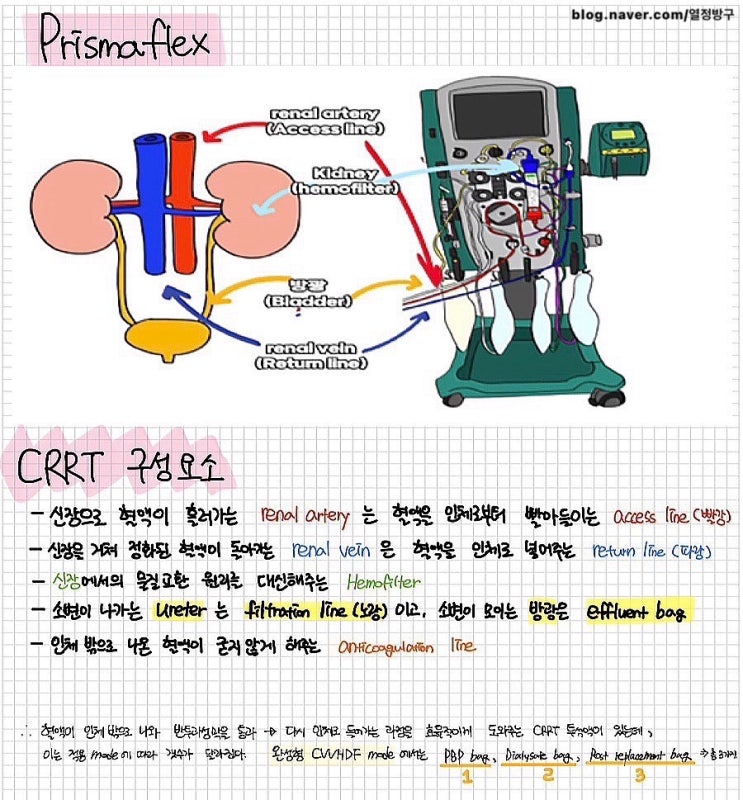 blog.naver.com/열정방구
Prismaflex
renal artery
(Access line)
Kidney
(hemofilter)
방광
(Bladder)
renal vein
(Return line)
CRRT 구성요소
- 신장으로 혈액이 흘러가는 renal artery 는 혈액을 인체로부터 빨아들이는 access line (빨강)
- 신장을 거쳐 정화된 혈액이 돌아가는 renal vein 은 혈액을 인체로 넣어주는 return line (파랑)
- 신장에서의 물질교환 원리를 대신해주는 Hemofilter
- 소변이 나가는 ureter 는 filtration line (노랑) 이고, 소변이 모이는 방광은 effluent bag
- 인체 밖으로 나온 혈액이 굳지 않게 해주는 anticoagulation line
∴ 혈액이 인체 밖으로 나와 반투과성막을 통과 → 다시 인체로 돌아가는 과정을 효율적이게 도와주는 CRRT 투석액이 있는데,
이는 적용 mode에 따라 갯수가 달라진다. 완성형 CVVHDF mode 에서는 PBP bag, Dialysate bag, Post replacement bag → 총 3가지
1 2 3